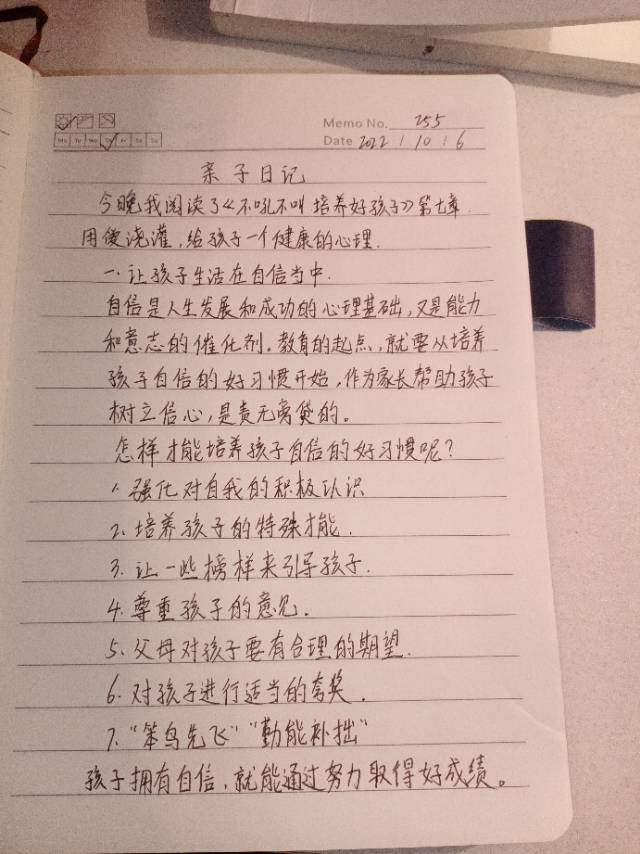 Memo No. 255
Mo Tu We Th Fr Sa Su
Date 2022 / 10 / 6
亲子日记
今晚我阅读了《不吼不叫 培养好孩子》第七章
用爱浇灌,给孩子一个健康的心理.
一.让孩子生活在自信当中.
自信是人生发展和成功的心理基础,又是能力
和意志的催化剂.教育的起点,就要从培养
孩子自信的好习惯开始,作为家长帮助孩子
树立信心,是责无旁贷的。
怎样才能培养孩子自信的好习惯呢?
1.强化对自我的积极认识
2.培养孩子的特殊才能.
3.让一些榜样来引导孩子.
4.尊重孩子的意见.
5.父母对孩子要有合理的期望.
6.对孩子进行适当的夸奖.
7."笨鸟先飞""勤能补拙"
孩子拥有自信,就能通过努力取得好成绩。